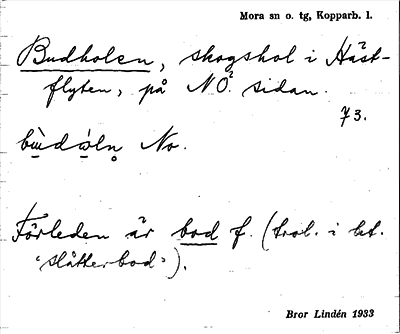 Mora sn o. tg, Kopparb. l.
Budholen, skogshol i Häst-
flyten, på NÖ. sidan.
73.
bùdóln No.
Förleden är bod f. (trol. i bet.
'slåtterbod').
Bror Lindén 1933